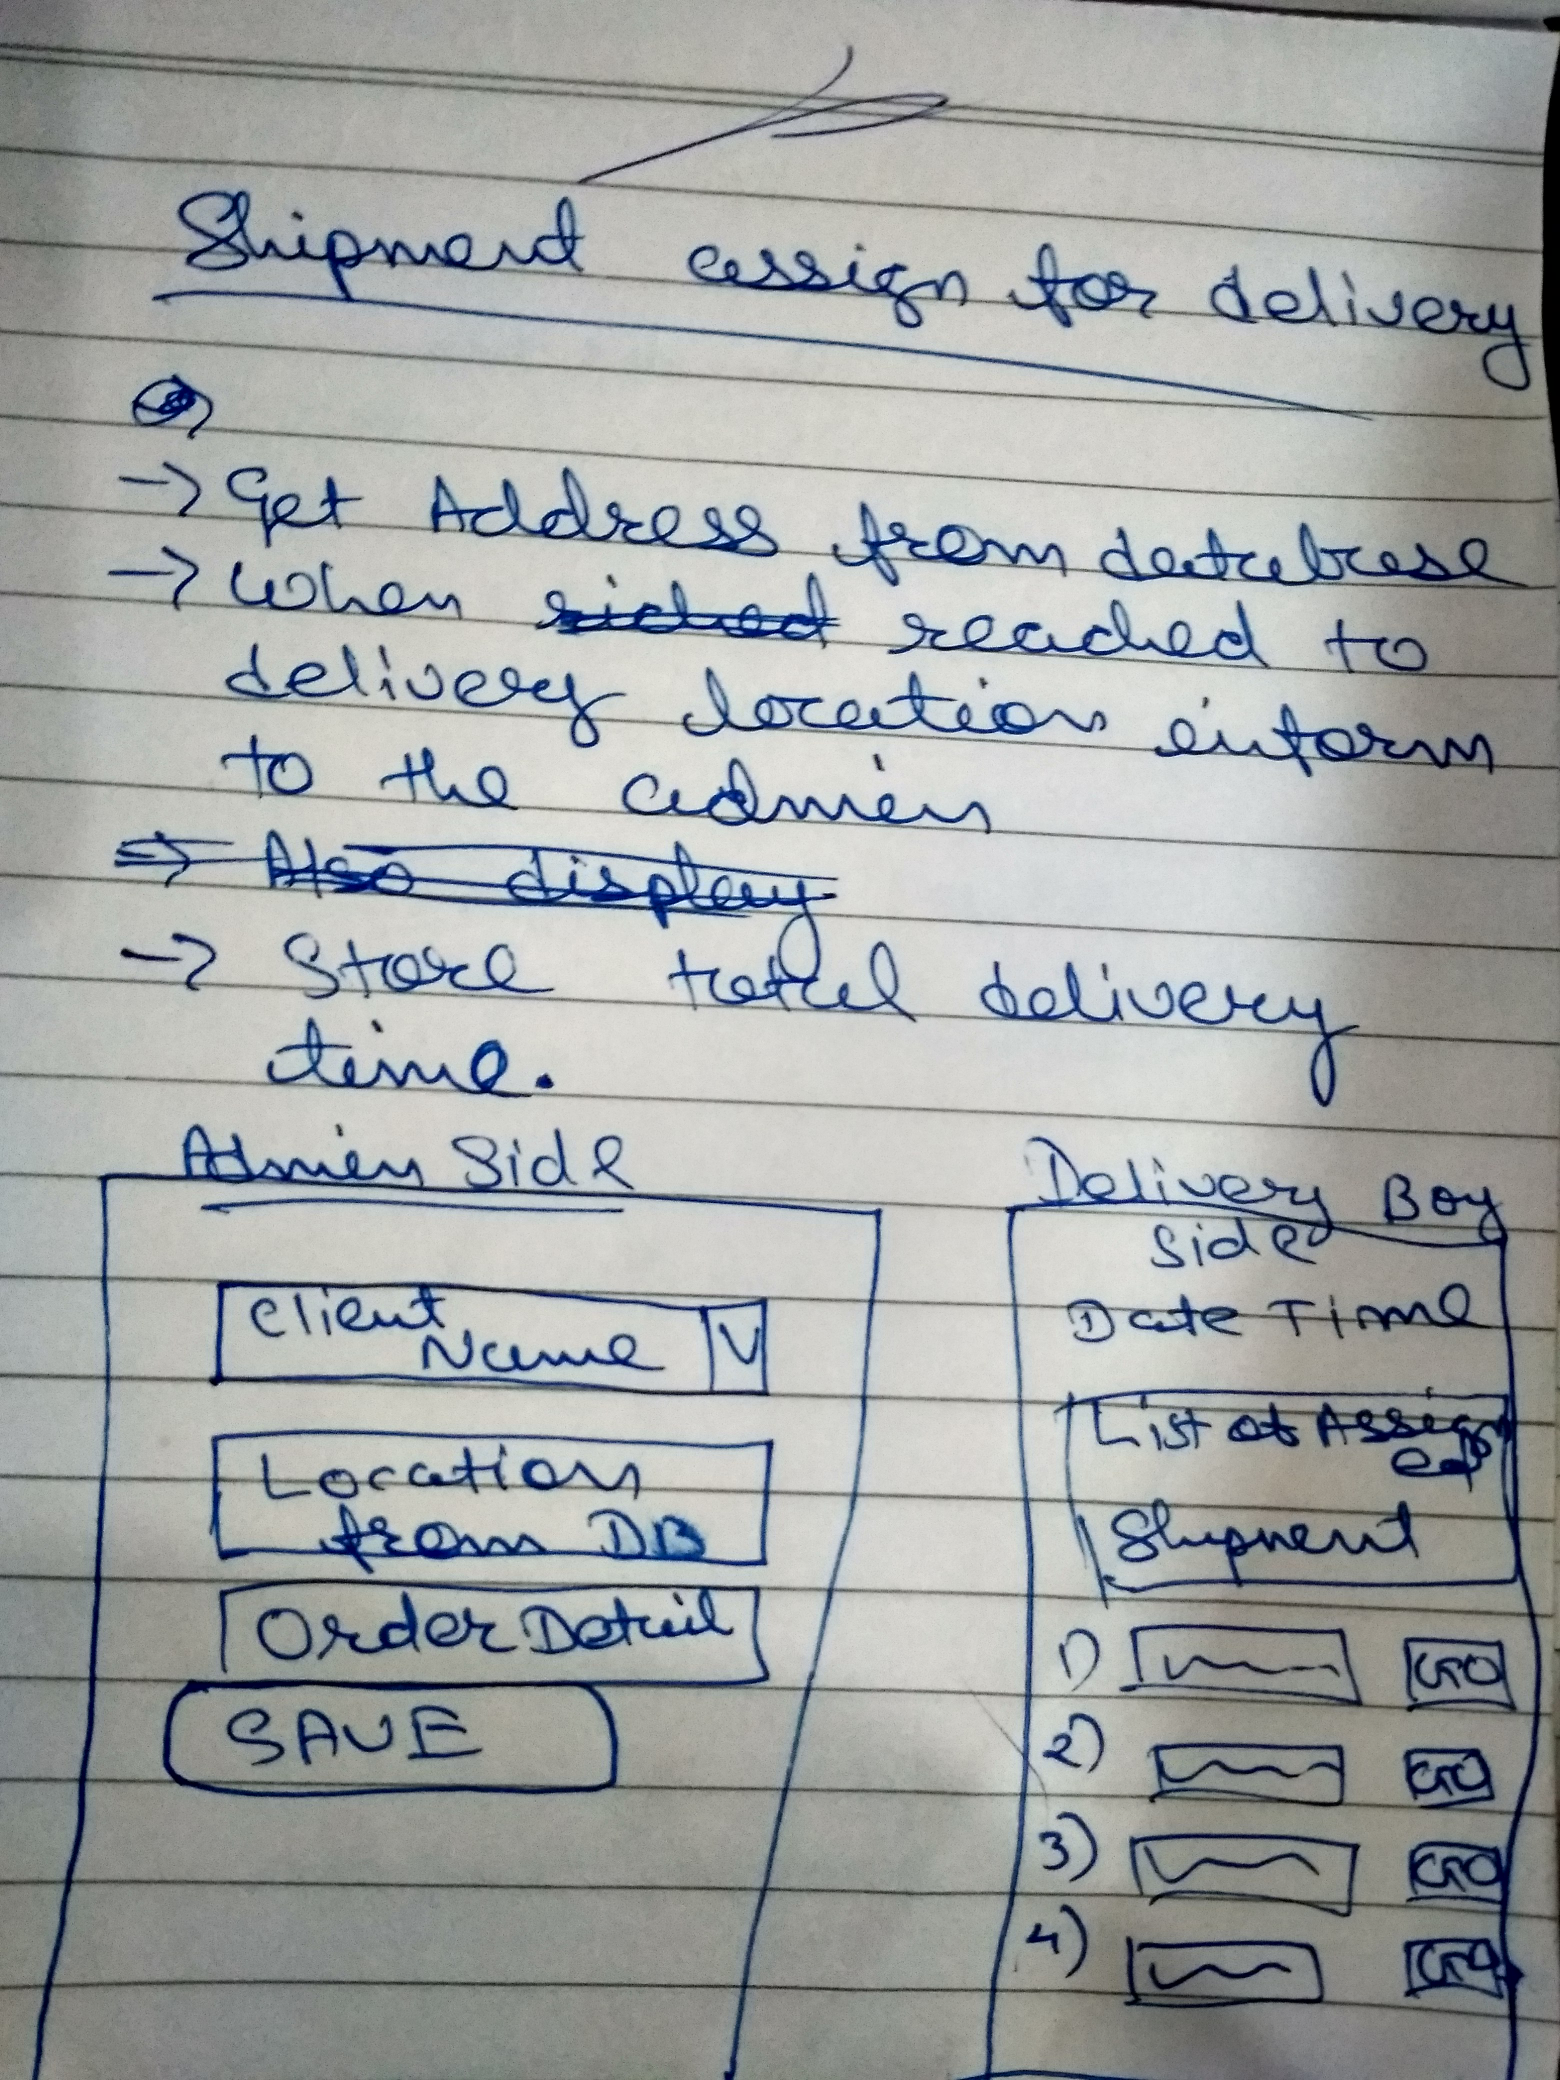 Shipment assign for delivery
→ Get Address from database
→ When reached to
delivery location inform
to the admin
⇒ Also display
→ Store total delivery
time.
Admin Side
Client
Name V
Location
from DB
Order Detail
SAVE
Delivery Boy
Side
Date Time
List of Assign
ed
Shipment
1) GO
2) GO
3) GO
4) GO